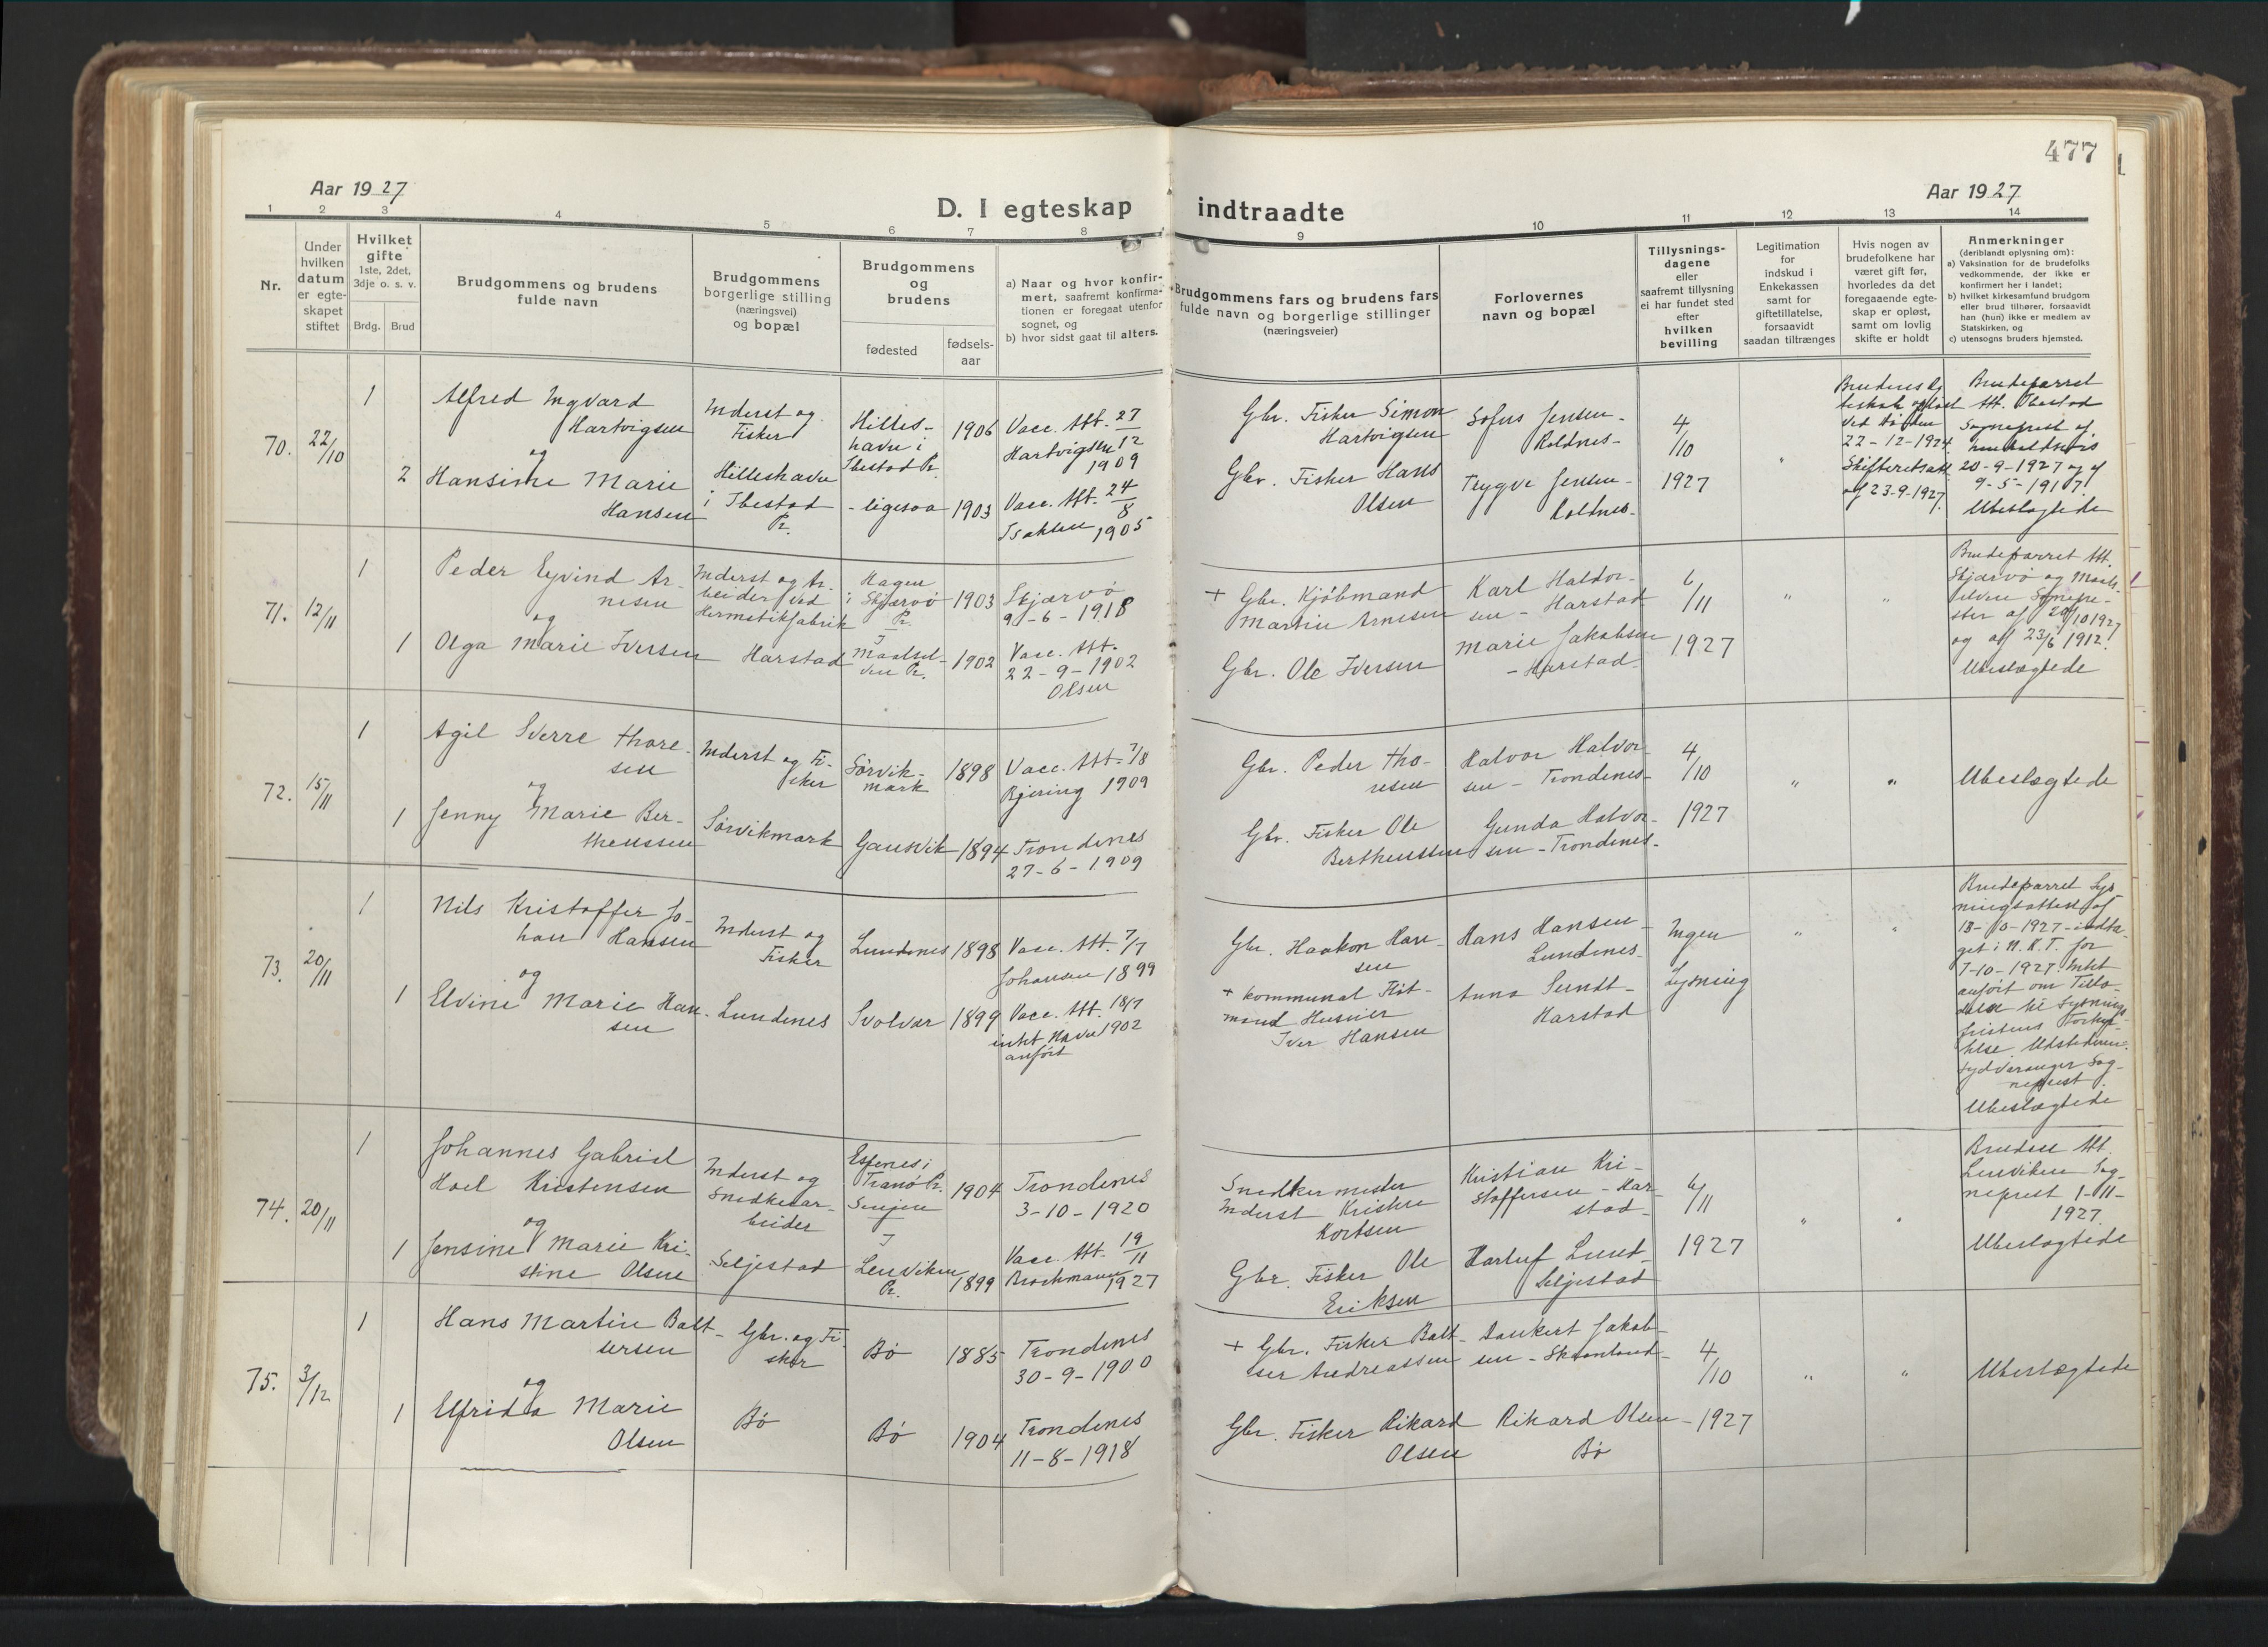 477
Aar 1927
Aar 1927
D. I egteskap indtraadte
1 2 3 4 5 6 7 8 9 10 11 12 13 14
Nr.
Under
hvilken
datum
er egte-
skapet
stiftet
Hvilket
gifte
1ste, 2det,
3dje o. s. v.
Brdg. Brud
Brudgommens og brudens
fulde navn
Brudgommens
borgerlige stilling
(næringsvei)
og bopæl
Brudgommens
og
brudens
fødested
fødsels-
aar
a) Naar og hvor konfir-
mert, saafremt konfirma-
tionen er foregaat utenfor
sognet, og
b) hvor sidst gaat til alters.
Brudgommens fars og brudens fars
fulde navn og borgerlige stillinger
(næringsveier)
Forlovernes
navn og bopæl
Tillysnings-
dagene
eller
saafremt tillysning
ei har fundet sted
efter
hvilken
bevilling
Legitimation
for
indskud i
Enkekassen
samt for
giftetillatelse,
forsaavidt
saadan tiltrænges
Hvis nogen av
brudefolkene har
været gift før,
hvorledes da det
foregaaende egte-
skap er opløst,
samt om lovlig
skifte er holdt
Anmerkninger
(deriblandt oplysning om):
a) Vaksination for de brudefolks
vedkommende, der ikke er
konfirmert her i landet;
b) hvilket kirkesamfund brudgom
eller brud tilhører, forsaavidt
han (hun) ikke er medlem av
Statskirken, og
c) utensogns bruders hjemsted.
70.
22/10
1
2
Alfred Ingvard
Hartvigsen
og
Hansine Marie
Hansen
Inderst og
Fisker
Hilleshavn
i Ibestad
Pr.
Hilles-
havn i
Ibestad Pr.
- ligesaa
1906
1903
Vacc. Att. 27/12
Hartvigsen
1909
Vacc. Att. 24/8
Isaksen 1905
Gbr. Fisker Simon
Hartvigsen
Gbr. Fisker Hans
Olsen
Sofus Jensen -
Roldnes -
Trygve Jensen -
Roldnes -
4
/10
1927
"
ved Döden
22-12-1924.
Skifteretsatt.
af 23-9-1927.
Brudeparret
Att. Ibestad
Sogneprest af
20-9-1927 og af
9-5-1917.
Ubeslægtede
71.
12/11
1
1
Peder Eyvind Ar-
nesen
og
Olga Marie Iversen
Inderst og Ar-
beider ved
Hermetikfabrik
Harstad
Hagen
i Skjærvö
Pr.
Maalsel-
ven Pr.
1903
1902
Skjærvö
9-6-1918
Vacc. Att.
22-9-1902
Olsen
+ Gbr. Kjöbmand
Martin Arnesen
Gbr. Ole Iversen
Karl Haldor-
sen - Harstad
Marie Jakobsen
- Harstad -
6
/11
1927
"
"
Brudeparret Att.
Skjærvö og Maals-
elven Sognepre-
ster af 29/10 1927
og af 23/6 1912.
Ubeslægtede
72.
15/11
1
1
Agil Sverre Thore-
sen
og
Jenny Marie Ber-
theussen
Inderst og Fi-
sker
Sörvikmark
Sörvik-
mark
Gausvik
1898
1894
Vacc. Att. 7/8
Bjering 1909
Trondenes
27-6-1909
Gbr. Peder Tho-
resen
Gbr. Fisker Ole
Bertheussen
Halvor Halvor-
sen - Trondenes -
Gunda Halvor-
sen - Trondenes -
4
/10
1927
"
"
Ubeslægtede
73.
20/11
1
1
Nils Kristoffer Jo-
han Hansen
og
Elvine Marie Han-
sen
Inderst og
Fisker
Lundenes
Lundenes
Svolvær
1898
1899
Vacc. Att. 7/7
Johansen 1899
Vacc. Att. 18/7
intet Navn 1902
anfört
Gbr. Haakon Han-
sen
+ kommunal Flöt-
mand Huseier
Iver Hansen
Hans Hansen -
Lundenes -
Anna Sundt -
Harstad
Ingen
Lysning
"
"
Brudeparret Lys-
ningsattest af
18-10-1927 - indta-
get i N. K. T. for
7-10-1927. Intet
anfört om Tilla-
delse til Lysnings-
fristens Forkor-
telse. Udstederen.
Sydvaranger Sog-
neprest.
Ubeslægtede
74.
20/11
1
1
Johannes Gabriel
Hoel Kristensen
og
Jensine Marie Kri-
stine Olsen
Inderst og
Snedkerar-
beider
Seljestad
Espenes i
Tranö Pr.
Senjen
Lenviken
Pr.
1904
1899
Trondenes
3-10-1920
Vacc. Att. 19/11
Brochmann 1927
Snedkermester
Inderst Kristen
Kortsen
Gbr. Fisker Ole
Eriksen
Kristian Kri-
stoffersen - Har-
stad -
Harluf Lund -
Seljestad
6
/11
1927
"
"
Bruden Att.
Lenviken Sog-
neprest 1-11-
1927.
Ubeslægtede
75.
3/12
1
1
Hans Martin Balt-
sersen
og
Elfrida Marie
Olsen
Gbr. og Fi-
sker
Bö
Bö
Bö
1885
1904
Trondenes
30-9-1900
Trondenes
11-8-1918
+ Gbr. Fisker Balt-
ser Andreassen
Gbr. Fisker Rikard
Olsen
Dankert Jakob-
sen - Skaanland -
Rikard Olsen -
Bö
4
/10
1927
"
"
Ubeslægtede